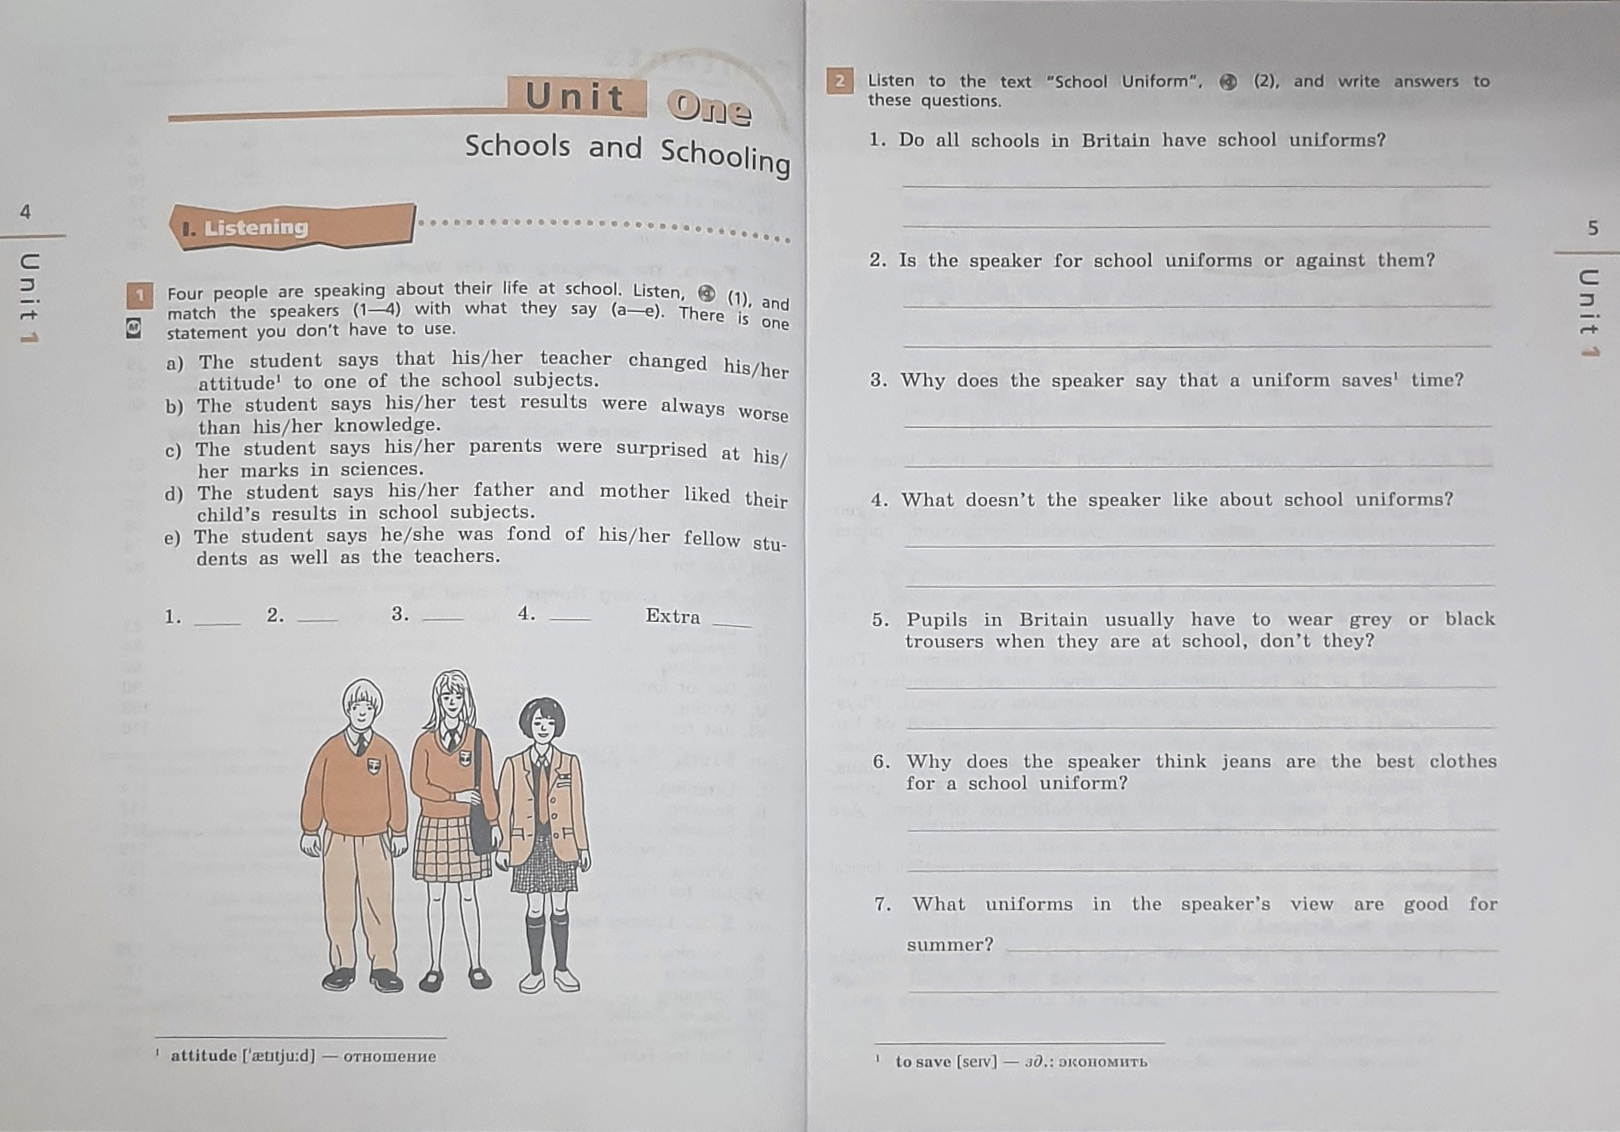 Unit One
Schools and Schooling
4
Unit 1
I. Listening
1 Four people are speaking about their life at school. Listen, (1), and
match the speakers (1—4) with what they say (a—e). There is one
statement you don't have to use.
a) The student says that his/her teacher changed his/her
attitude¹ to one of the school subjects.
b) The student says his/her test results were always worse
than his/her knowledge.
c) The student says his/her parents were surprised at his/
her marks in sciences.
d) The student says his/her father and mother liked their
child's results in school subjects.
e) The student says he/she was fond of his/her fellow stu-
dents as well as the teachers.
1. ____ 2. ____ 3. ____ 4. ____ Extra ____
¹ attitude [ˈætɪtjuːd] — отношение
2 Listen to the text "School Uniform", (2), and write answers to
these questions.
1. Do all schools in Britain have school uniforms?
2. Is the speaker for school uniforms or against them?
3. Why does the speaker say that a uniform saves¹ time?
4. What doesn't the speaker like about school uniforms?
5. Pupils in Britain usually have to wear grey or black
trousers when they are at school, don't they?
6. Why does the speaker think jeans are the best clothes
for a school uniform?
7. What uniforms in the speaker's view are good for
summer?
¹ to save [seɪv] — зд.: экономить
5
Unit 1